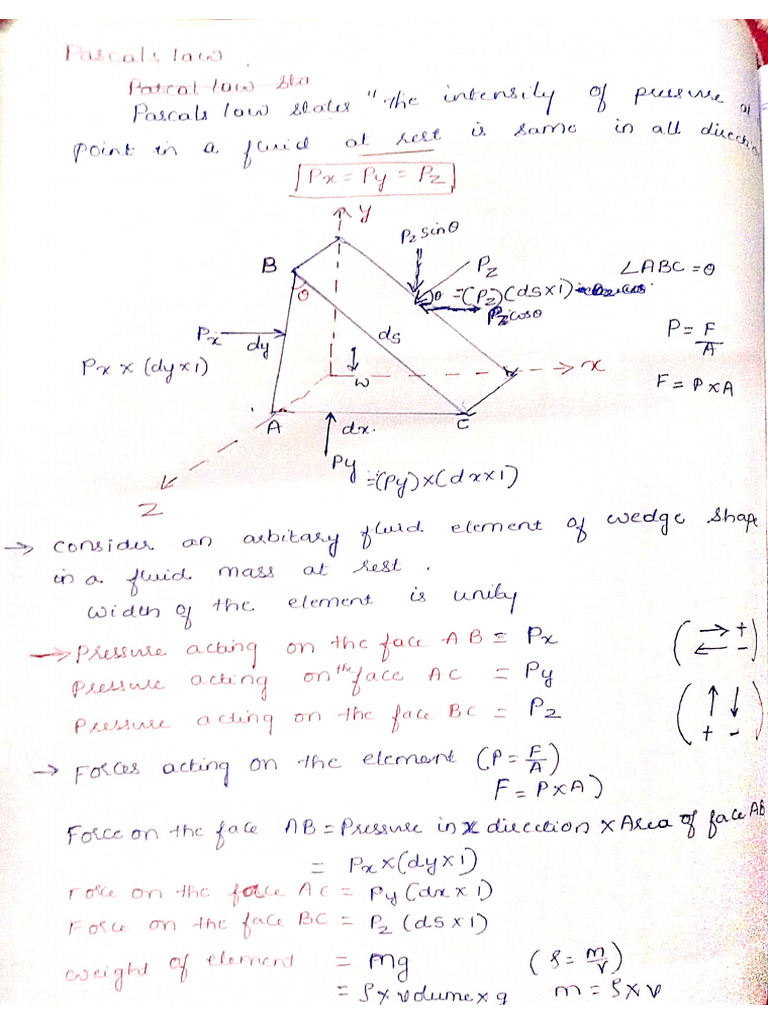 Pascals law.
Pascal law sta
Pascals law states "the intensity of pressure at
point in a fluid at rest is same in all direction
Px = Py = Pz
y
Pz sinθ
B
Pz
∠ABC = θ
θ
θ = (Pz)(ds×1)
Pz cosθ
Px
dy
ds
P = F/A
Px × (dy×1)
w
x
F = P×A
A
dx.
C
Py
= (Py)×(dx×1)
Z
→ consider an arbitary fluid element of wedge shape
in a fluid mass at rest.
width of the element is unity
→ Pressure acting on the face AB = Px
( → + ← -
Pressure acting on the face AC = Py
Pressure acting on the face BC = Pz
( ↑ ↓ + -
→ Forces acting on the element (P = F/A)
F = P×A)
Force on the face AB = Pressure in x direction × Area of face AB
= Px×(dy×1)
Force on the face AC = Py(dx×1)
Force on the face BC = Pz(ds×1)
weight of element = mg (ρ = m/v)
= ρ×volume×g m = ρ×v